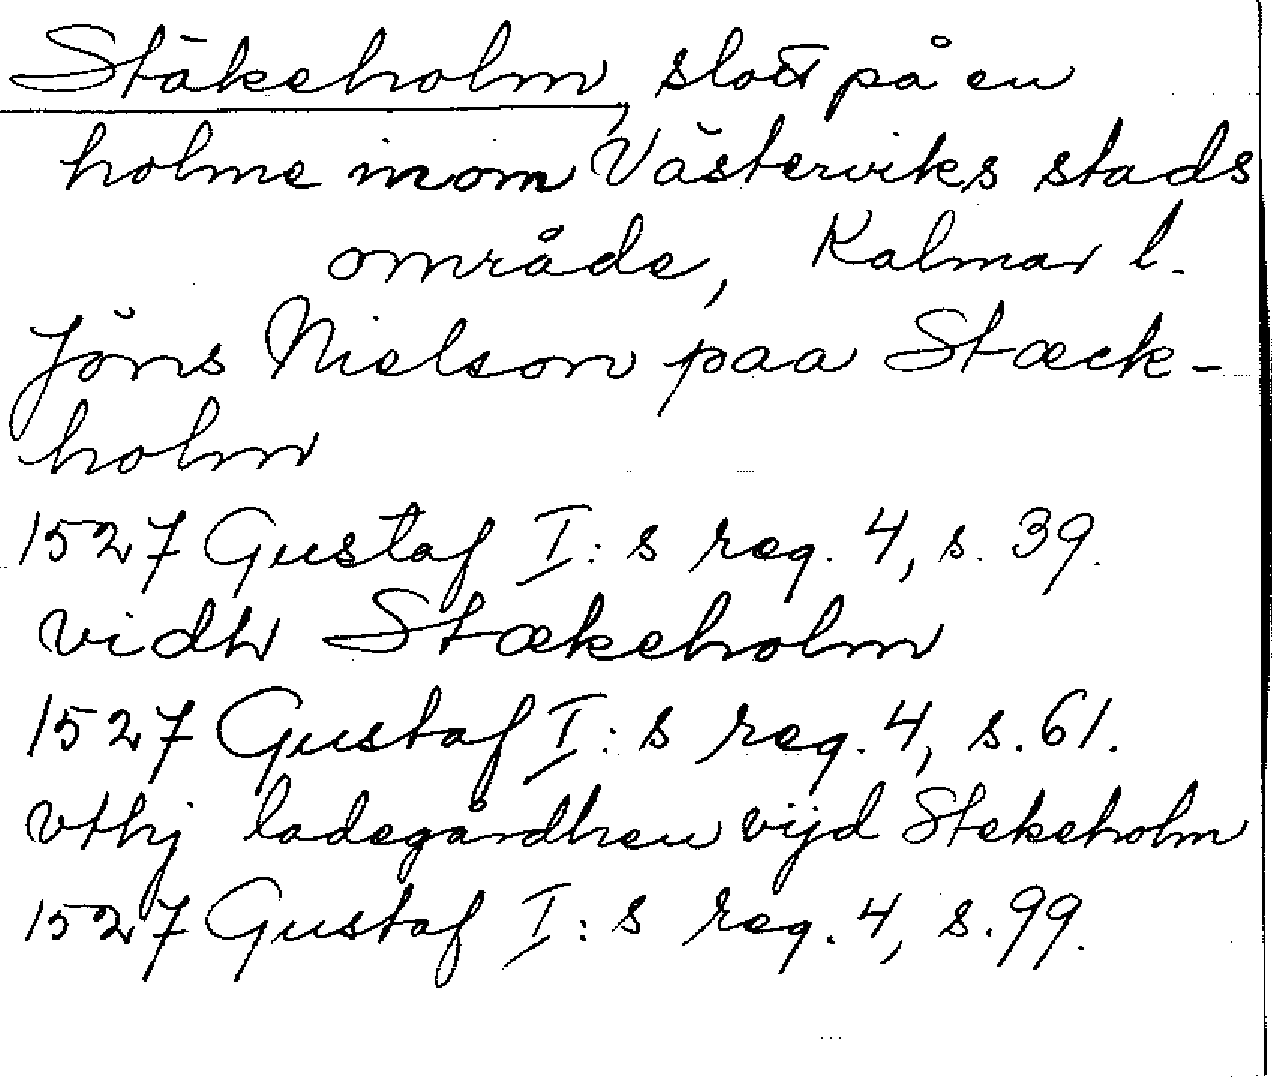 Stäkeholm, slott på en
holme inom Västerviks stads
område, Kalmar l.
Jöns Nielson paa Stæck-
holm
1527 Gustaf I:s reg. 4, s. 39.
vidh Stækeholm
1527 Gustaf I:s reg. 4, s. 61.
vthj ladegårdhen vijd Stekeholm
1527 Gustaf I:s reg. 4, s. 99.